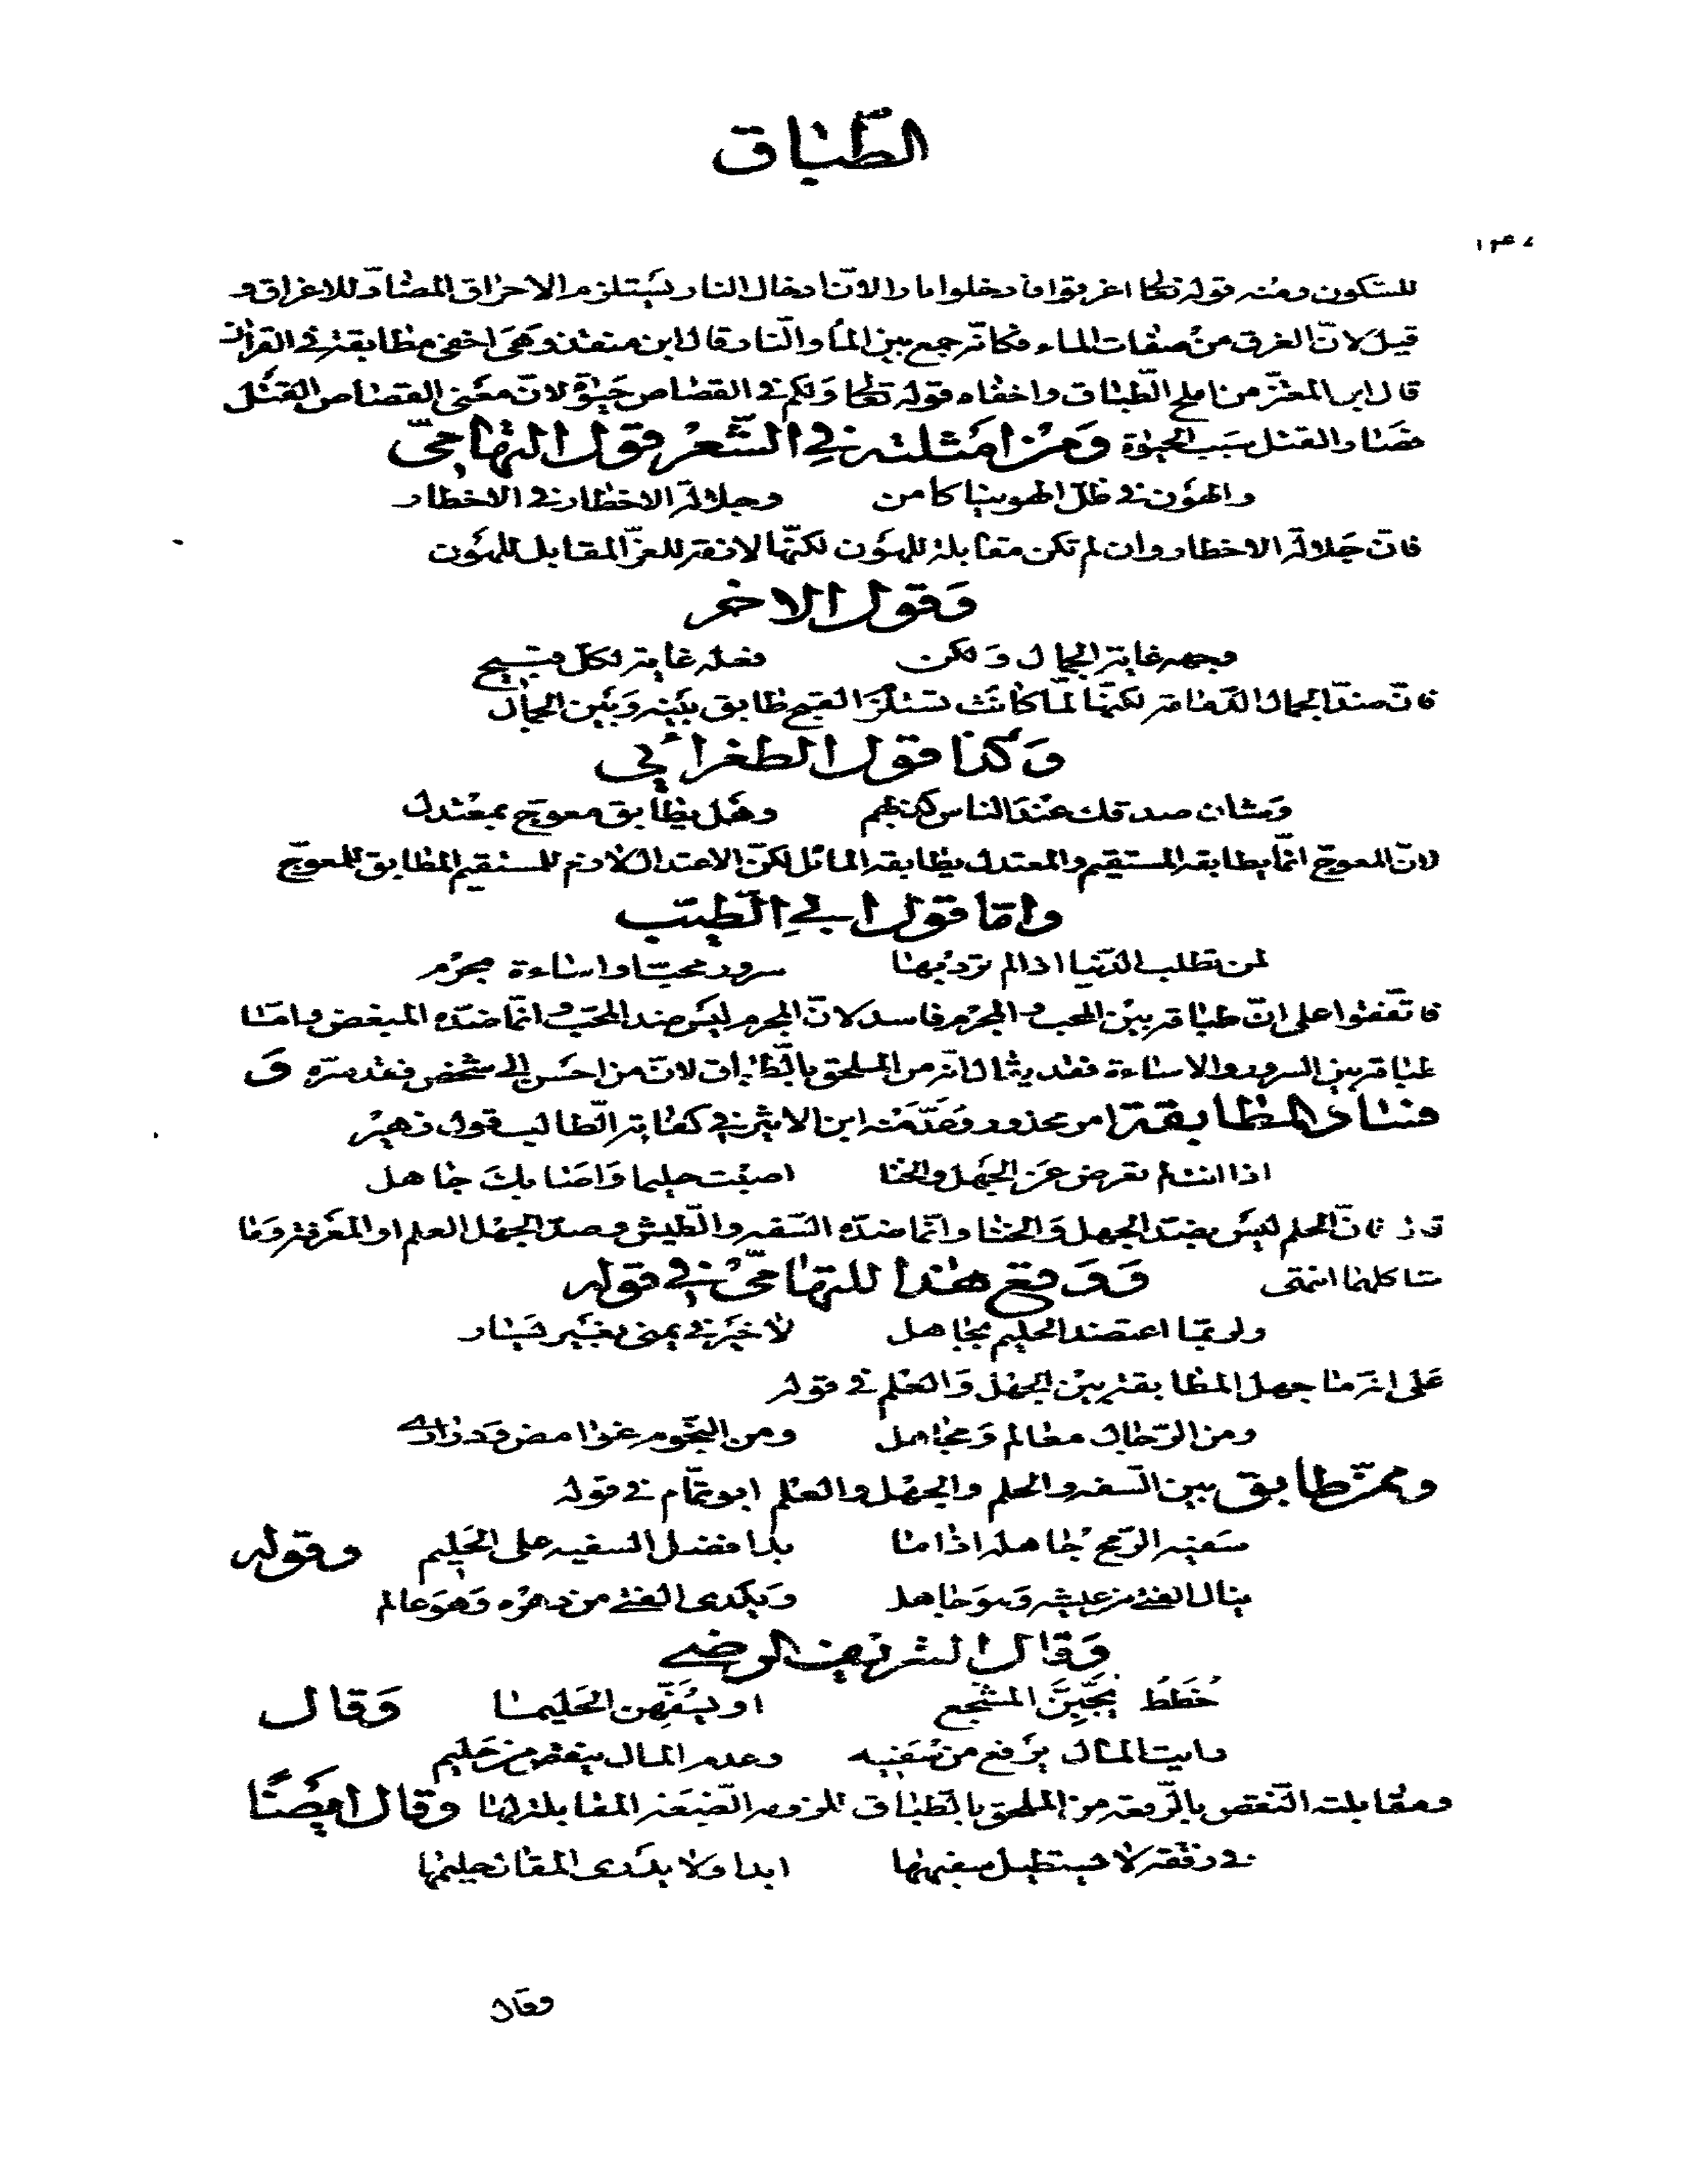 الطباق
١٣٤٧
للسكون ومنه قوله تعالى اغرقوا فادخلوا نارا لانّ ادخال النار يستلزم الاحراق المضادّ للاغراق و
قيل لانّ الغرق من صفات الماء فكانّه جمع بين الماء والنّار قال ابن منقذ وهي اخفى مطابقة في القرآن
قال ابن المعتزّ من املح الطّباق واخفاه قوله تعالى وَلكم في القصاص حَيٰوة لانّ معنى القصاص القتل
فصار القتل سبب الحيٰوة وَمن امثلته في الشّعر قول التهاميّ
والهوُن في ظلّ الهوينا كامن وجلالة الاخطار في الاخطار
فانّ جَلالة الاخطار وان لم تكن مقابلة للهوُن لكنّها لازمة للعزّ المقابل للهوُن
وَقول الاخر
وجهه غاية الجمال وَلكن فعله غاية لكلّ قبيح
فانّ ضدّ الجمال الدّمامة لكنّها لمّا كانت تستلزم القبح طابق بينه وَبين الجمال
وَكذا قول الطغرائي
وَشان صدقك عند الناس كذبهم وهَل يطابق معوجّ بمعتدل
لانّ المعوجّ انمّا يطابقه المستقيم والمعتدل يطابقه المائل لكنّ الاعتدال لازم للمستقيم المطابق للمعوجّ
وامّا قول ابي الطّيّب
لمن تطلب الدّنيا اذا لم ترد بها سرور محبّ او اساءة مجرم
فاتّفقوا على انّ طباقه بين المحب والمجرم فاسد لانّ المجرم ليَس ضد المحبّ و انمّا ضدّه المبغض وامّا
طباقه بين السرور والاساءة فقد يقال انّه من الملحق بالطّباق لانّ من احسَن الى شخص فقد سرّه وَ
فساد المطابقة امر محذور وَعَدّ منه ابن الاثير في كفاية الطّالب قول زهير
اذا انت لم تعرض عن الجهل والخنا اصبت حليما وَاصابك جاهل
قال فانّ الحلم ليسَ بضدّ الجهل وَالخنا وانمّا ضدّه السّفه والطّيش وضدّ الجهل العلم او المعَرفة وَما
شاكلها انتهى وَوَقع هٰذا للتهاميّ في قوله
ولربّما اعتضد الحليم بجاهل لا خَير في يمنى بغَير يَسار
عَلى انّه ما جهل المطابقة بين الجهل وَالعلم في قوله
ومن الرّجال معالم وَمجاهل ومن النّجوم غوامض وَدراري
وممّن طابق بين السّفه والحلم والجهل والعلم ابو تمّام في قوله
سَفيه الرّمح جاهله اذا ما بدا فضل السفيه على الحَليم وقوله
ينال الفتى من عيشه وَهوَ جاهل وَيكدى الفتى من دهره وَهوَ عالم
وَقال الشريف الرضي
خُطَطٌ يُجَبِّنَّ المشّجع او يُسَفِّهن الحَليما وَقال
رايت المال يرفع من سَفيه وعدم المال ينقص من حَليم
ومقابلته النّقص بالرّفعة من الملحق بالطّباق للزوم الضّعَة المقابلة لها وقال ايضًا
في رفقة لا يستطيل سفيهها ابدا ولا يَدرى المقال حليمها
وقال